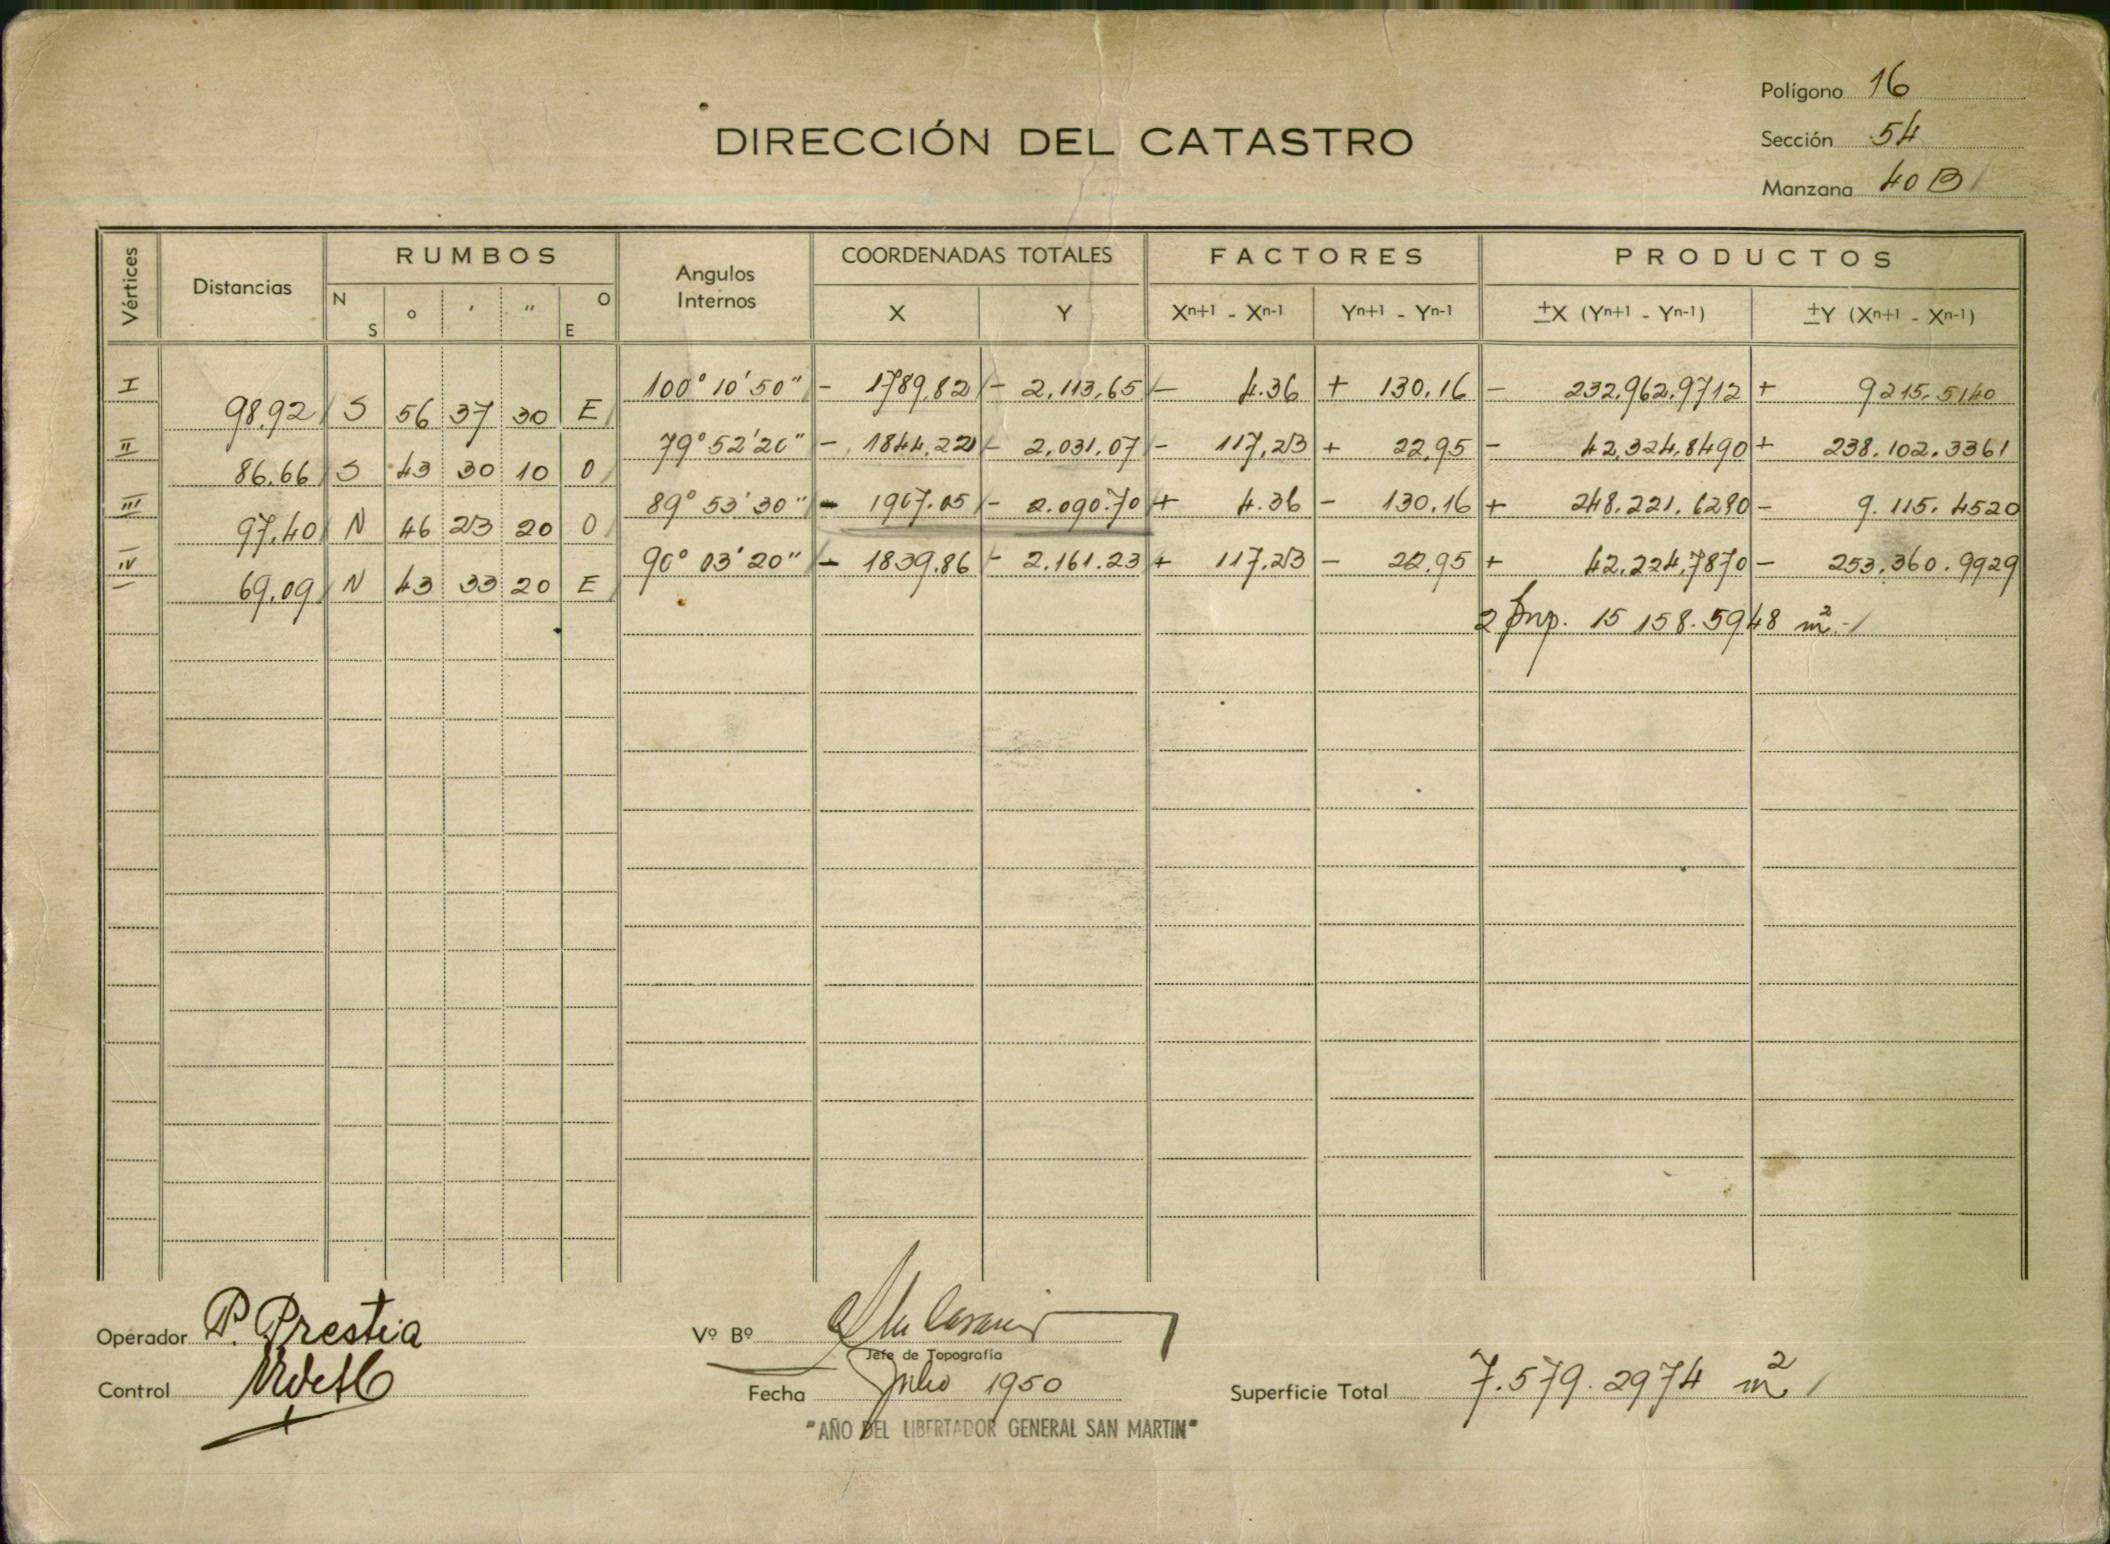 Polígono 16
DIRECCIÓN DEL CATASTRO
Sección 54
Manzana 40 B
Vértices Distancias RUMBOS Angulos Internos COORDENADAS TOTALES FACTORES PRODUCTOS
N S o ' '' O E X Y Xn+1 - Xn-1 Yn+1 - Yn-1 ±X (Yn+1 - Yn-1) ±Y (Xn+1 - Xn-1)
I 100° 10' 50" - 1789,82 - 2.113,65 - 4.36 + 130.16 - 232.962.9712 + 9215.5140
98.92 S 56 37 30 E
II 79° 52' 20" - 1844,22 - 2.031.07 - 117,23 + 22,95 - 42.324.8490 + 238.102.3361
86.66 S 43 30 10 O
III 89° 53' 30" - 1907.05 - 2.090.70 + 4.36 - 130.16 + 248.221.6280 - 9.115.4520
97.40 N 46 23 20 O
IV 90° 03' 20" - 1839.86 - 2.161.23 + 117.23 - 22.95 + 42.224.7870 - 253.360.9929
69.09 N 43 33 20 E
2 Sup. 15 158.5948 m²
Operador P. Prestia
Vº Bº
Jefe de Topografía
Control
Fecha Julio 1950
Superficie Total 7.579.2974 m²
"AÑO DEL LIBERTADOR GENERAL SAN MARTIN"